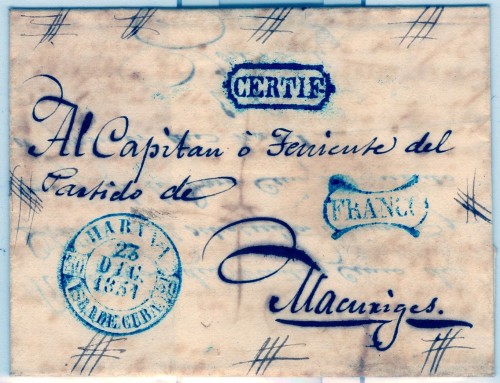 CERTIF
Al Capitan ò Teniente del
Partido de
FRANCO
HABANA
23
DIC
1851
ISLA DE CUBA
Macuriges.